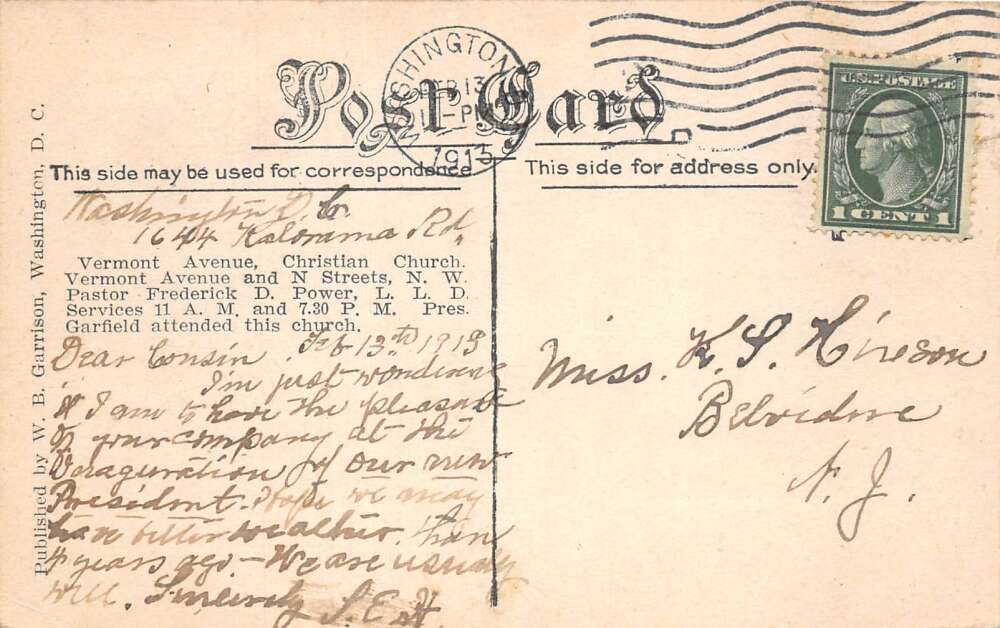 Post Card
WASHINGTON,
FEB 13
1913
U.S. POSTAGE
1 CENT 1
This side may be used for correspondence
This side for address only.
Published by W. B. Garrison, Washington, D. C.
Washington D. C.
1644 Kalorama Rd,
Vermont Avenue, Christian Church.
Vermont Avenue and N Streets, N. W.
Pastor Frederick D. Power, L. L. D.
Services 11 A. M. and 7.30 P. M. Pres.
Garfield attended this church.
Feb 13th 1913
Dear Cousin
I'm just wondering
if I am to have the pleasure
of your company at the
Inauguration of our new
President. I hope we may
have better weather than
4 years ago - We are usually
well. Sincerely S. E. H.
Miss. K. S. Hixson
Belvidere
N. J.